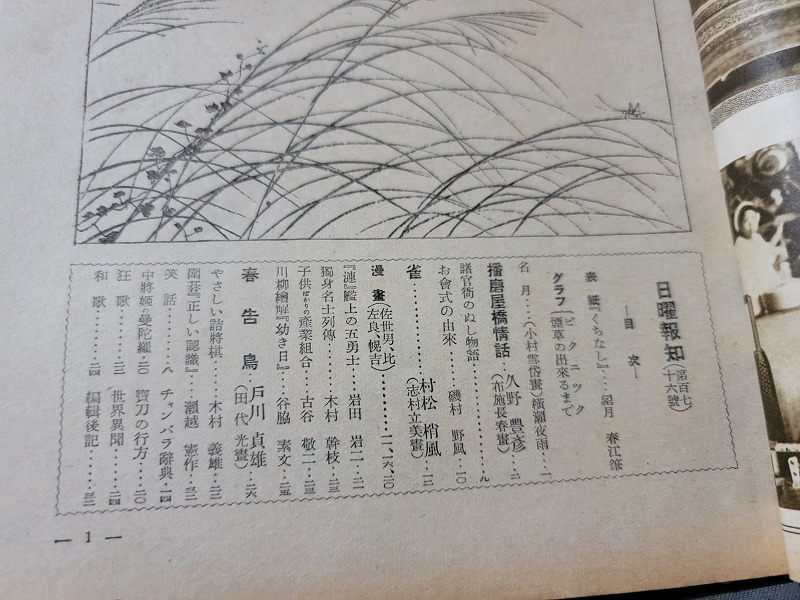 日曜報知（第百七十六號）
—目次—
表紙『くちなし』……霜月 春江筆
グラフ（ピクニック 煙草の出來るまで）
名月……（小村雪岱畫）橫瀨夜雨…一
播磨屋橋情話…久野豊彦（布施長春畫）…二
諸官衙のぬし物語……九
お會式の由來……磯村 野風…一〇
雀……村松梢風（志村立美畫）…一二
漫畫（佐世男、比左良、幌吉）……一一、一六、二〇
『漣』艦上の五勇士……岩田 岩二…二一
獨身名士列傳……木村 幹枝…二三
子供ばかりの產業組合…古谷 敬二…二三
川柳繪解『幼き日』……谷脇 素文…二五
春告鳥 戶川貞雄（田代光畫）…二六
やさしい詰將棋……木村 義雄…二二
圍碁『正しい認識』…瀨越 憲作…三二
笑話……八
チャンバラ辭典…一四
中將姬の曼陀羅…二〇
寶刀の行方…二〇
狂歌……二三
世界異聞…二四
和歌……二四
編輯後記……三二
— 1 —